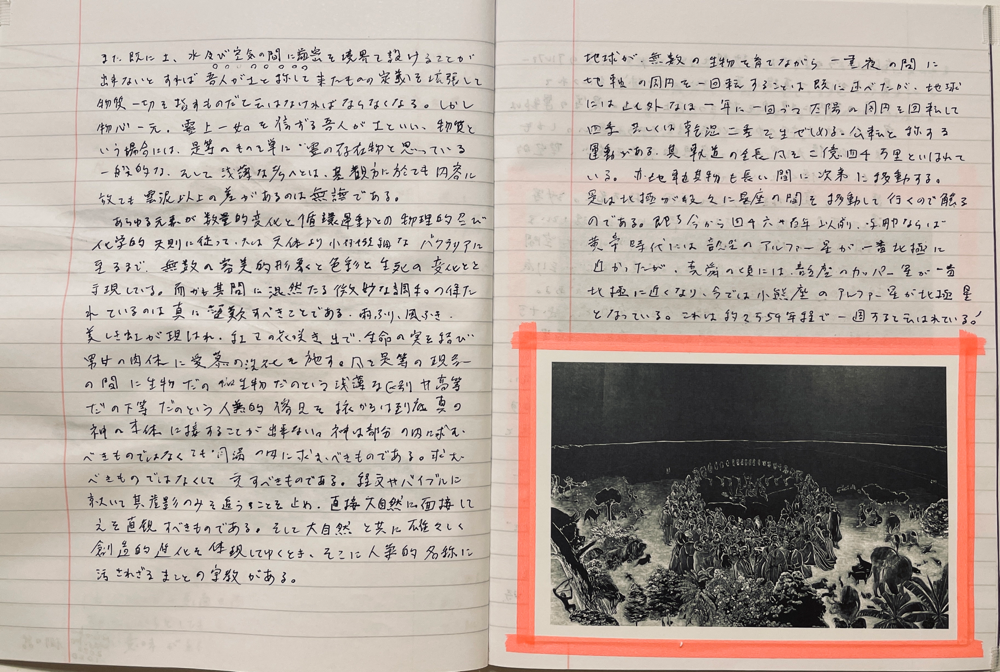 また既に土、水及び空気の間に厳密な境界を設けることが
出来ないとすれば吾人が土と称して来たものの定義を拡張して
物質一切を指すものだと云はなければならなくなる。しかし
物心一元、霊土一如を信ずる吾人が土といい、物質と
いう場合には、是等のものを単に 霊の存在物と思っている
一般的な、そして浅薄な多くとは、其観方に於ても内容に
於ても雲泥以上の差があるのは無論である。
あらゆる元素が数量的変化と循環運動との物理的及び
化学的法則に従って、大は天体より小は微細なバクテリアに
至るまで、無数の審美的形象と色彩と生死の変化とを
示現している。而かも其間に混然たる微妙な調和の保た
れているのは真に驚歎すべきことである。雨ふり、風ふき、
美しき虹が現はれ、紅の花咲き出で、生命の実を結び
男女の肉体に愛慕の 化を施す。凡て是等の現象
の間に生物だの無生物だのという浅薄な区別や高等
だの下等だのという人為的僻見を抜からは到底真の
神の本体に接することが出来ない。神は部分の内に求む
べきものではなくて円満の内に求むべきものである。求む
べきものではなくして すべきものである。経文やバイブルに
於いて其虚影のみを追うことを止め、直接大自然に面接して
之を直観すべきものである。そして大自然と共に雄々しく
創造的進化を体現してゆくとき、そこに人為的名称に
汚されざるまことの宗教がある。
地球が、無数の生物を育てながら一昼夜の間に
地軸の周囲を一回転することは既に述べたが、地球
には此外なほ一年に一回づつ太陽の周囲を回転して
四季若しくは乾湿二季を生ぜしめる公転と称する
運動がある。其軌道の全長凡そ二億四千万里といはれて
いる。亦地軸其物も長い間に次第に移動する。
是は北極が段々に星座の間を移動して行くので解る
のである。即ち今から四千六 百年以前、 ならば
黄帝時代には龍座のアルファー星が一番北極に
近かったが、 の頃には、龍座のカッパー星が一番
北極に近くなり、今では小熊座のアルファー星が北極星
となっている。これは約2559年程で一週すると云はれている。